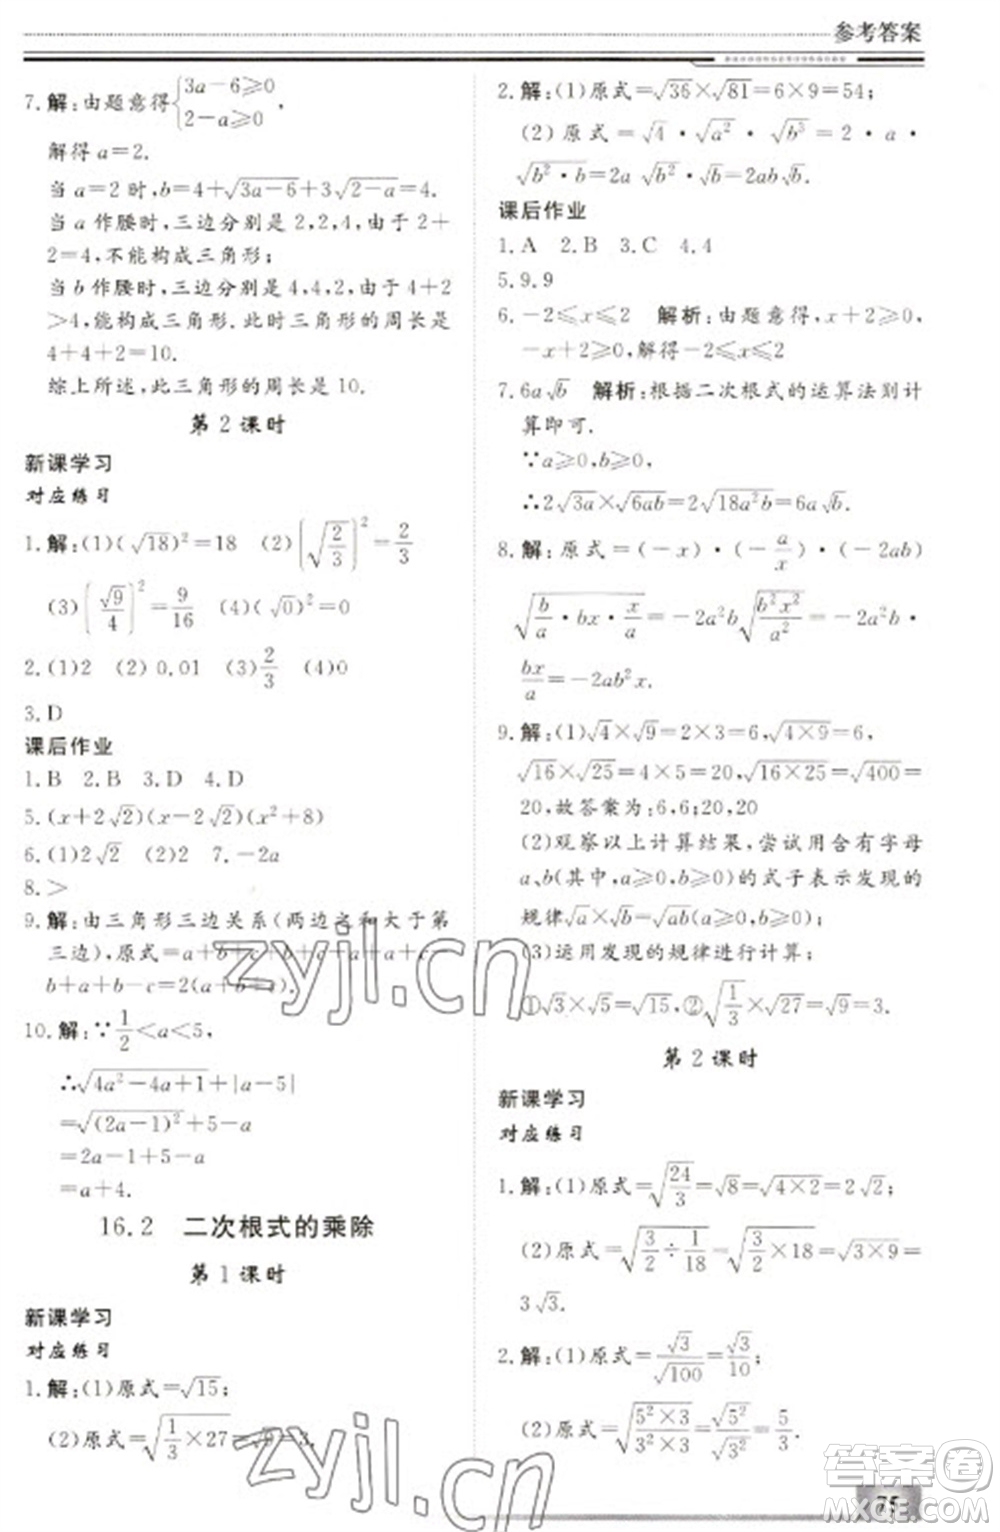 参考答案
7.解:由题意得{3a-6⩾0, 2-a⩾0,
解得a=2.
当a=2时,b=4+√(3a-6)+3√(2-a)=4.
当a作腰时,三边分别是2,2,4,由于2+
2=4,不能构成三角形;
当b作腰时,三边分别是4,4,2,由于4+2
>4,能构成三角形.此时三角形的周长是
4+4+2=10.
综上所述,此三角形的周长是10.
第2课时
新课学习
对应练习
1.解:(1)(√18)²=18 (2)(√(2/3))²=2/3
(3)(√9/4)²=9/16 (4)(√0)²=0
2.(1)2 (2)0.01 (3)2/3 (4)0
3.D
课后作业
1.B 2.B 3.D 4.D
5.(x+2√2)(x-2√2)(x²+8)
6.(1)2√2 (2)2 7.-2a
8.>
9.解:由三角形三边关系(两边之和大于第
三边),原式=a+b+c+b+c+a+a+
b+a+b-c=2(a+b+c).
10.解:∵1/2<a<5,
∴√(4a²-4a+1)+|a-5|
=√((2a-1)²)+5-a
=2a-1+5-a
=a+4.
16.2 二次根式的乘除
第1课时
新课学习
对应练习
1.解:(1)原式=√15;
(2)原式=√(1/3×27)=√9=3.
2.解:(1)原式=√36×√81=6×9=54;
(2)原式=√4·√a²·√b³=2·a·
√(b²·b)=2a√b²·√b=2ab√b.
课后作业
1.A 2.B 3.C 4.4
5.9.9
6.-2⩽x⩽2 解析:由题意得,x+2⩾0,
-x+2⩾0,解得-2⩽x⩽2
7.6a√b 解析:根据二次根式的运算法则计
算即可.
∵a⩾0,b⩾0,
∴2√(3a)×√(6ab)=2√(18a²b)=6a√b.
8.解:原式=(-x)·(-a/x)·(-2ab)
√(b/a·bx·x/a)=-2a²b√(b²x²/a²)=-2a²b·
bx/a=-2ab²x.
9.解:(1)√4×√9=2×3=6,√(4×9)=6,
√16×√25=4×5=20,√(16×25)=√400=
20,故答案为:6,6;20,20
(2)观察以上计算结果,尝试用含有字母
a、b(其中,a⩾0,b⩾0)的式子表示发现的
规律√a×√b=√(ab)(a⩾0,b⩾0);
(3)运用发现的规律进行计算:
①√3×√5=√15,②√(1/3)×√27=√9=3.
第2课时
新课学习
对应练习
1.解:(1)原式=√(24/3)=√8=√(4×2)=2√2;
(2)原式=√(3/2÷1/18)=√(3/2×18)=√(3×9)=
3√3.
2.解:(1)原式=√3/√100=√3/10;
(2)原式=√(5²×3/3²×3)=√5²/√3²=5/3.
75
zyjl.cn
zyjl.cn
答案圈
MXQE.COM